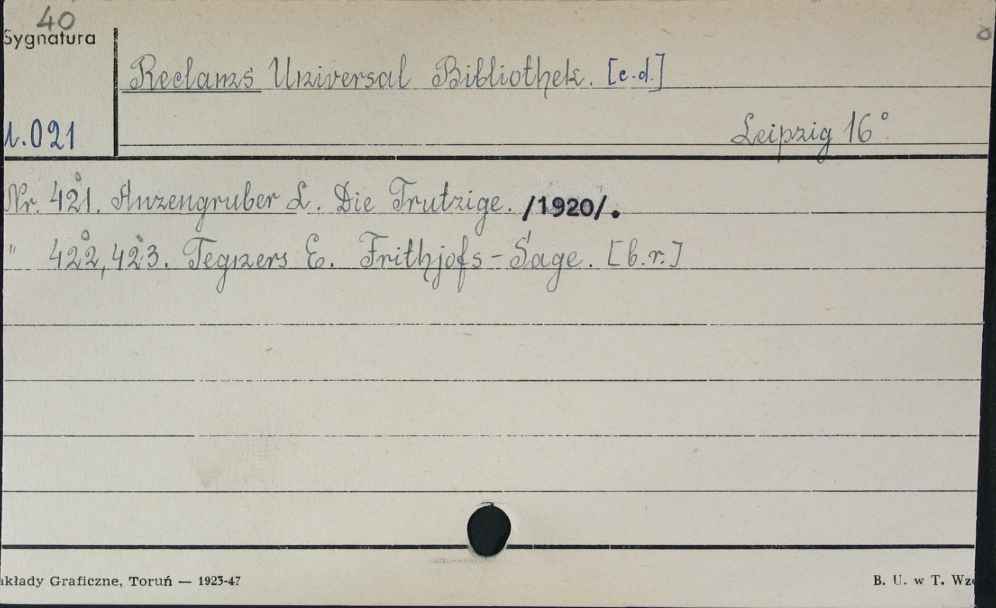 40
Sygnatura
Reclams Universal Bibliothek. [c.d.]
1.021
Leipzig 16°
Nr. 421. Anzengruber L. Die Trutzige. /1920/.
" 422, 423. Tegners E. Frithjofs-Sage. [b.r.]
akłady Graficzne, Toruń — 1923-47
B. U. w T. Wzó